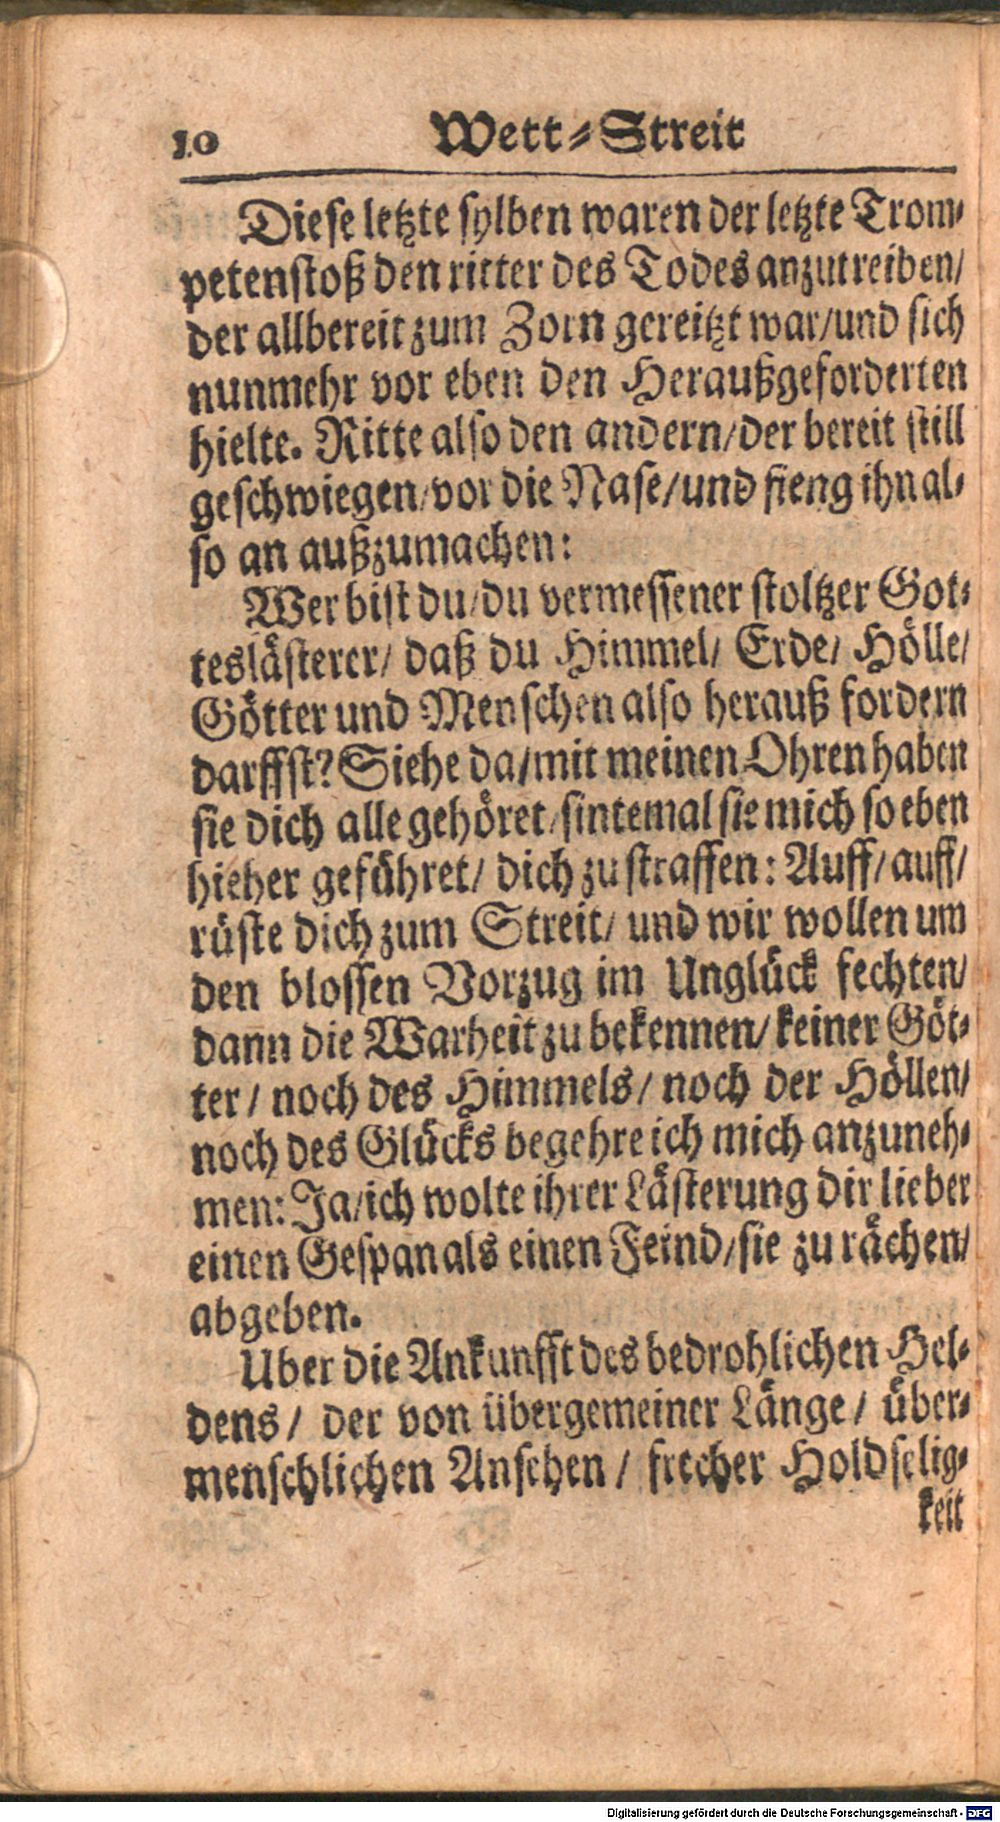 10 Wett-Streit
Diese letzte sylben waren der letzte Trom-
petenstoß den ritter des Todes anzutreiben/
der allbereit zum Zorn gereitzt war/und sich
nunmehr vor eben den Heraußgeforderten
hielte. Ritte also den andern/der bereit still
geschwiegen/vor die Nase/und fieng ihn al-
so an außzumachen:
Wer bist du/du vermessener stoltzer Got-
teslästerer/ daß du Himmel/ Erde/ Hölle/
Götter und Menschen also herauß fordern
darffst? Siehe da/mit meinen Ohren haben
sie dich alle gehöret/sintemal sie mich so eben
hieher geführet/ dich zu straffen: Auff/auff/
rüste dich zum Streit/ und wir wollen um
den blossen Vorzug im Unglück fechten/
dann die Warheit zu bekennen/keiner Göt-
ter/ noch des Himmels/ noch der Höllen/
noch des Glücks begehre ich mich anzuneh-
men: Ja/ich wolte ihrer Lästerung dir lieber
einen Gespan als einen Feind/sie zu rächen/
abgeben.
Uber die Ankunfft des bedrohlichen Hel-
dens/ der von übergemeiner Länge/ über-
menschlichen Ansehen/ frecher Holdselig-
keit
Digitalisierung gefördert durch die Deutsche Forschungsgemeinschaft - DFG